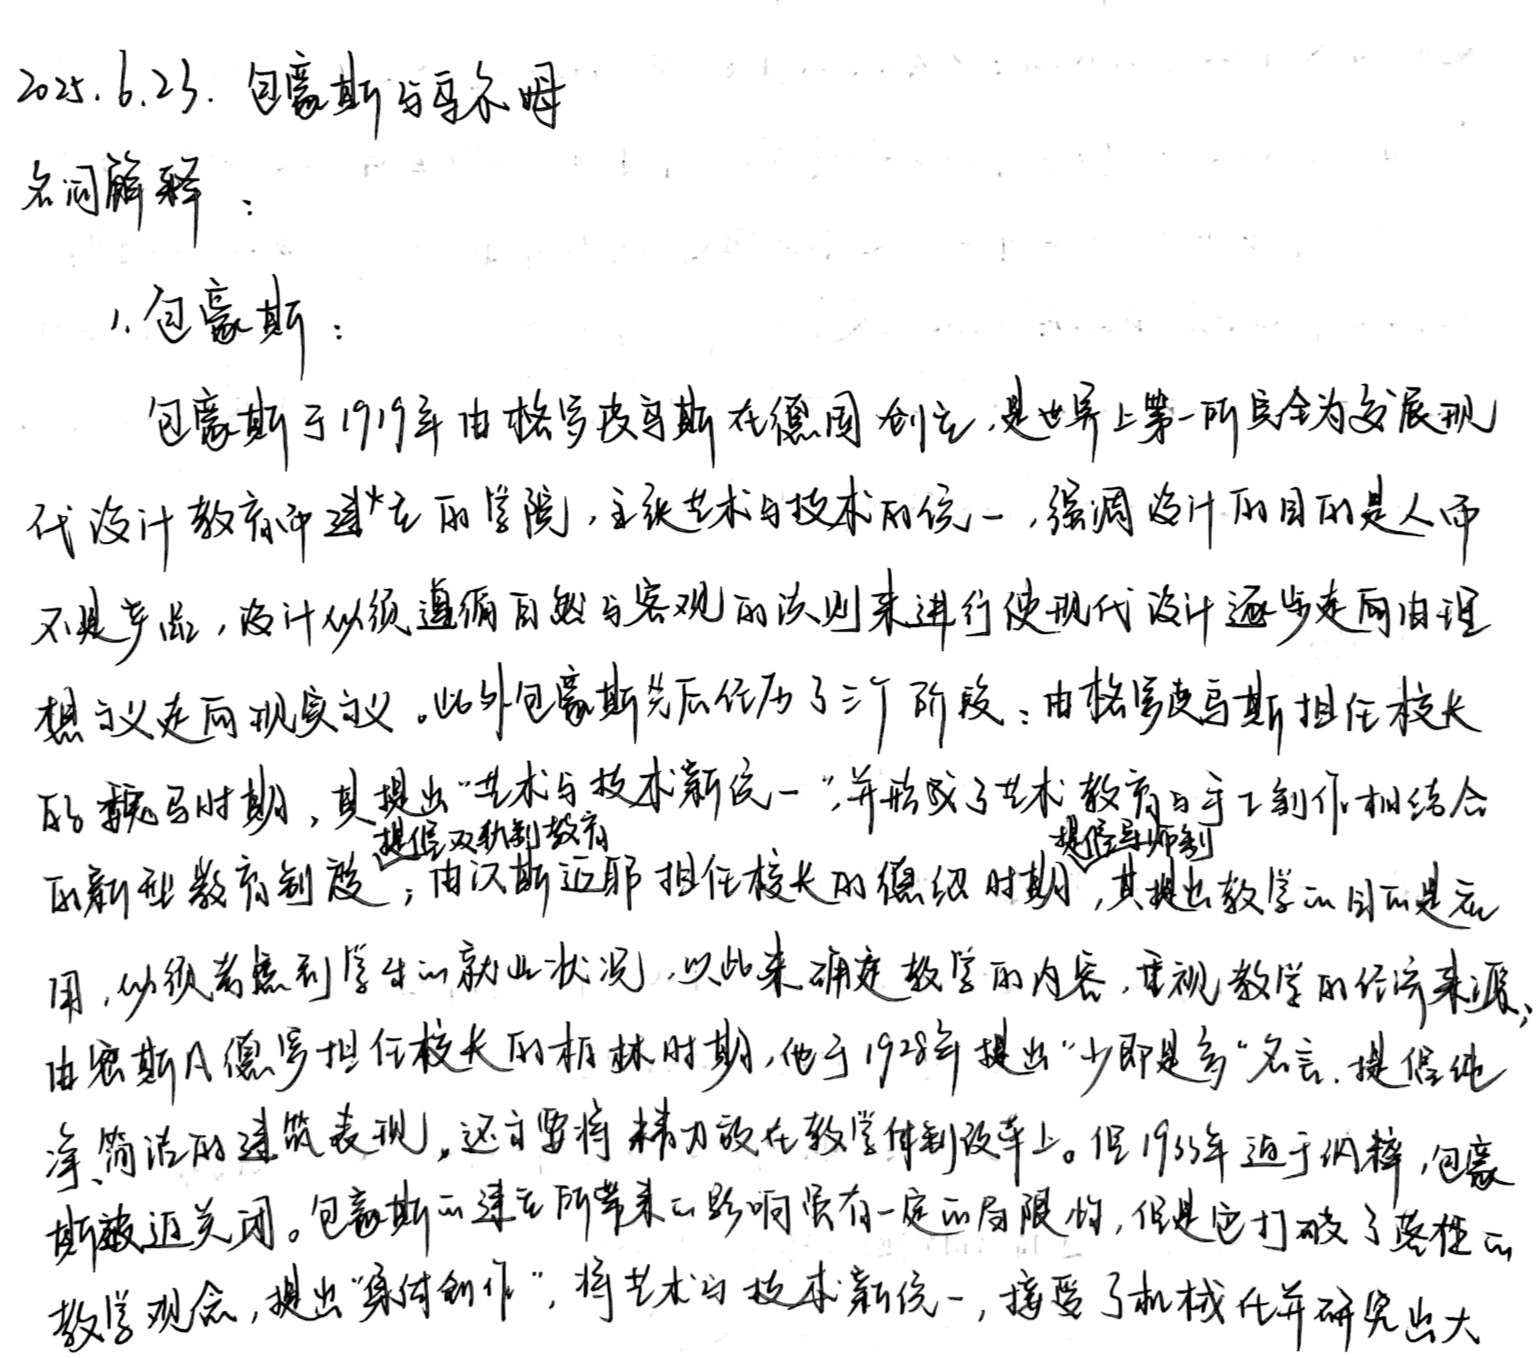 2025.6.23. 包豪斯与乌尔姆
名词解释：
1. 包豪斯：
包豪斯于1919年由格罗皮乌斯在德国创立，是世界上第一所完全为发展现
代设计教育而建立的学院，主张艺术与技术的统一，强调设计的目的是人而
不是产品，设计必须遵循自然与客观的法则来进行使现代设计逐步走向由理
想主义走向现实主义。此外包豪斯先后经历了三个阶段：由格罗皮乌斯担任校长
的魏玛时期，其提出“艺术与技术新统一”，并形成了艺术教育与手工制作相结合
提倡双轨制教育 提倡导师制
的新型教育制度；由汉斯迈耶担任校长的德绍时期，其提出教学的目的是应
用，必须考虑到学生的就业状况，以此来确定教学的内容，重视教学的经济来源；
由密斯凡德罗担任校长的柏林时期，他于1928年提出“少即是多”名言，提倡纯
净、简洁的建筑表现。还主要将精力放在教学体制改革上。但1933年迫于纳粹，包豪
斯被迫关闭。包豪斯的建立所带来的影响虽有一定的局限性，但是它打破了落往的
教学观念，提出“集体创作”，将艺术与技术新统一，接受了机械化并研究出大